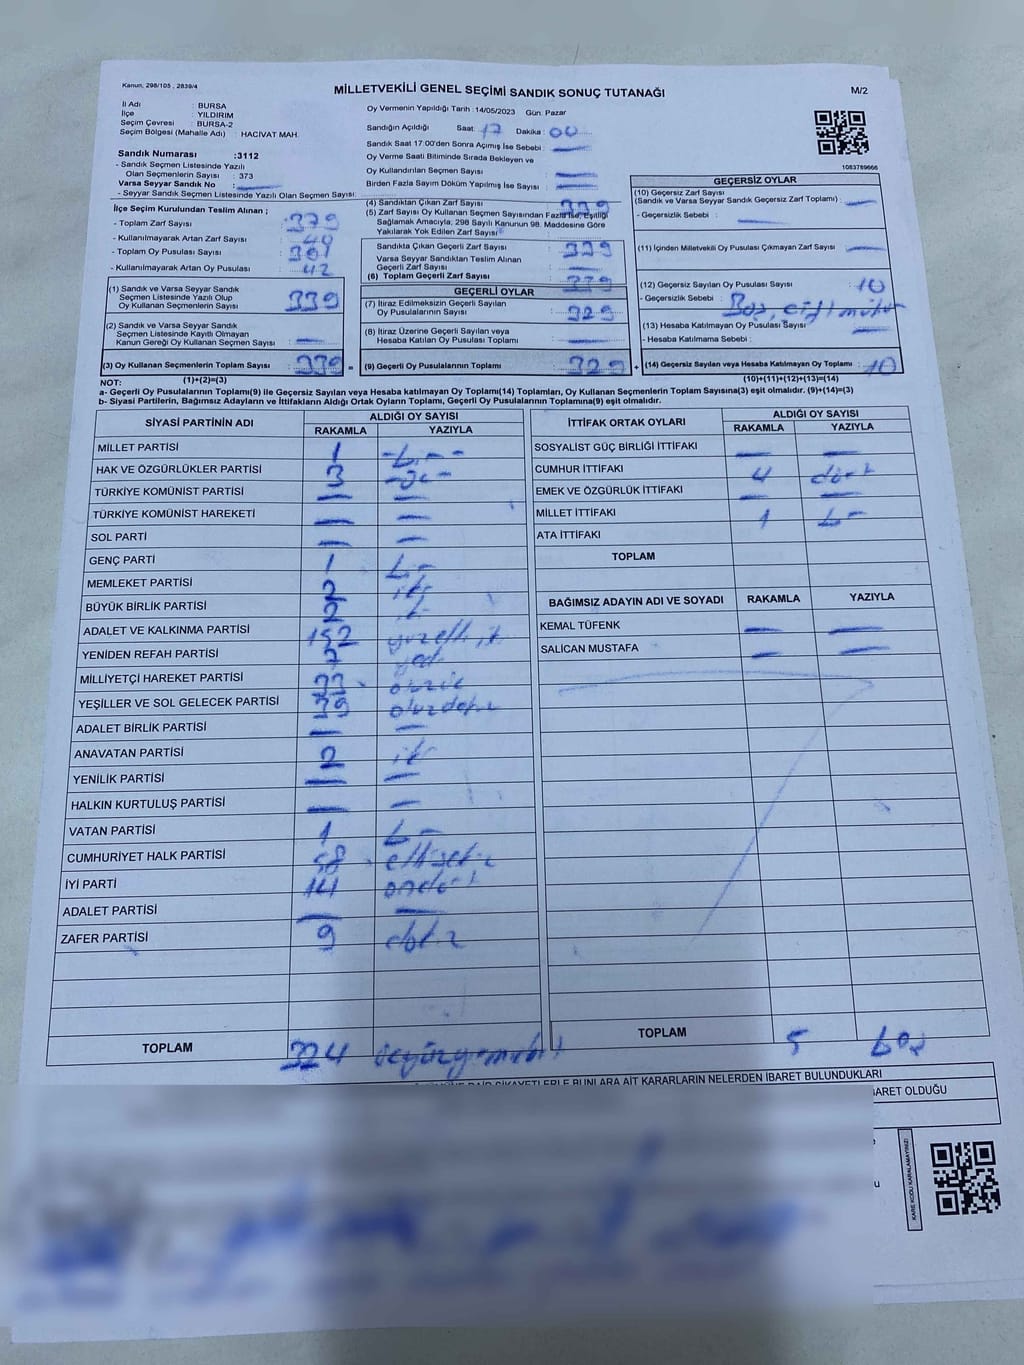 Kanun, 298/105 , 2839/4
MİLLETVEKİLİ GENEL SEÇİMİ SANDIK SONUÇ TUTANAĞI
M/2
İl Adı : BURSA
İlçe : YILDIRIM
Seçim Çevresi : BURSA-2
Seçim Bölgesi (Mahalle Adı) : HACİVAT MAH.
Sandık Numarası :3112
- Sandık Seçmen Listesinde Yazılı
Olan Seçmenlerin Sayısı : 373
Varsa Seyyar Sandık No :
- Seyyar Sandık Seçmen Listesinde Yazılı Olan Seçmen Sayısı:
İlçe Seçim Kurulundan Teslim Alınan ;
- Toplam Zarf Sayısı : 379
- Kullanılmayarak Artan Zarf Sayısı : 40
- Toplam Oy Pusulası Sayısı
- Kullanılmayarak Artan Oy Pusulası : 42
(1) Sandık ve Varsa Seyyar Sandık
Seçmen Listesinde Yazılı Olup
Oy Kullanan Seçmenlerin Sayısı : 339
(2) Sandık ve Varsa Seyyar Sandık
Seçmen Listesinde Kayıtlı Olmayan
Kanun Gereği Oy Kullanan Seçmen Sayısı :
(3) Oy Kullanan Seçmenlerin Toplam Sayısı : 339
Oy Vermenin Yapıldığı Tarih : 14/05/2023 Gün: Pazar
Sandığın Açıldığı Saat: 17 Dakika : 00
Sandık Saat 17:00'den Sonra Açımış İse Sebebi :
Oy Verme Saati Bitiminde Sırada Bekleyen ve
Oy Kullandırılan Seçmen Sayısı
Birden Fazla Sayım Döküm Yapılmış İse Sayısı
(4) Sandıktan Çıkan Zarf Sayısı : 339
(5) Zarf Sayısı Oy Kullanan Seçmen Sayısından Fazla ise, Eşitliği
Sağlamak Amacıyla, 298 Sayılı Kanunun 98. Maddesine Göre
Yakılarak Yok Edilen Zarf Sayısı
Sandıkta Çıkan Geçerli Zarf Sayısı : 339
Varsa Seyyar Sandıktan Teslim Alınan
Geçerli Zarf Sayısı
(6) Toplam Geçerli Zarf Sayısı : 339
GEÇERLİ OYLAR
(7) İtiraz Edilmeksizin Geçerli Sayılan
Oy Pusulalarının Sayısı : 329
(8) İtiraz Üzerine Geçerli Sayılan veya
Hesaba Katılan Oy Pusulası Toplamı
= (9) Geçerli Oy Pusulalarının Toplamı : 329
1083789666
GEÇERSİZ OYLAR
(10) Geçersiz Zarf Sayısı
(Sandık ve Varsa Seyyar Sandık Geçersiz Zarf Toplamı) :
- Geçersizlik Sebebi :
(11) İçinden Milletvekili Oy Pusulası Çıkmayan Zarf Sayısı
(12) Geçersiz Sayılan Oy Pusulası Sayısı : 10
- Geçersizlik Sebebi : Boş, çift mühür
(13) Hesaba Katılmayan Oy Pusulası Sayısı
- Hesaba Katılmama Sebebi :
+ (14) Geçersiz Sayılan veya Hesaba Katılmayan Oy Toplamı : 10
NOT: (1)+(2)=(3) (10)+(11)+(12)+(13)=(14)
a- Geçerli Oy Pusulalarının Toplamı(9) ile Geçersiz Sayılan veya Hesaba katılmayan Oy Toplamı(14) Toplamları, Oy Kullanan Seçmenlerin Toplam Sayısına(3) eşit olmalıdır. (9)+(14)=(3)
b- Siyasi Partilerin, Bağımsız Adayların ve İttifakların Aldığı Ortak Oyların Toplamı, Geçerli Oy Pusulalarının Toplamına(9) eşit olmalıdır.
SİYASİ PARTİNİN ADI ALDIĞI OY SAYISI
RAKAMLA YAZIYLA
MİLLET PARTİSİ 1 Bir
HAK VE ÖZGÜRLÜKLER PARTİSİ 3 üç
TÜRKİYE KOMÜNİST PARTİSİ
TÜRKİYE KOMÜNİST HAREKETİ
SOL PARTİ
GENÇ PARTİ 1 Bir
MEMLEKET PARTİSİ 2 iki
BÜYÜK BİRLİK PARTİSİ 2 iki
ADALET VE KALKINMA PARTİSİ 152 yüzelli iki
YENİDEN REFAH PARTİSİ 7 yedi
MİLLİYETÇİ HAREKET PARTİSİ 33 otuzüç
YEŞİLLER VE SOL GELECEK PARTİSİ 39 otuzdokuz
ADALET BİRLİK PARTİSİ
ANAVATAN PARTİSİ 2 iki
YENİLİK PARTİSİ
HALKIN KURTULUŞ PARTİSİ
VATAN PARTİSİ 1 Bir
CUMHURİYET HALK PARTİSİ 58 ellisekiz
İYİ PARTİ 14 ondört
ADALET PARTİSİ
ZAFER PARTİSİ 9 dokuz
TOPLAM 324 üçyüzyirmidört
İTTİFAK ORTAK OYLARI ALDIĞI OY SAYISI
RAKAMLA YAZIYLA
SOSYALİST GÜÇ BİRLİĞİ İTTİFAKI
CUMHUR İTTİFAKI 4 dört
EMEK VE ÖZGÜRLÜK İTTİFAKI
MİLLET İTTİFAKI 1 Bir
ATA İTTİFAKI
TOPLAM
BAĞIMSIZ ADAYIN ADI VE SOYADI RAKAMLA YAZIYLA
KEMAL TÜFENK
SALİCAN MUSTAFA
TOPLAM 5 beş
BUNLARA AİT KARARLARIN NELERDEN İBARET BULUNDUKLARI
BARET OLDUĞU
KARE KODU KARALAMAYINIZ!